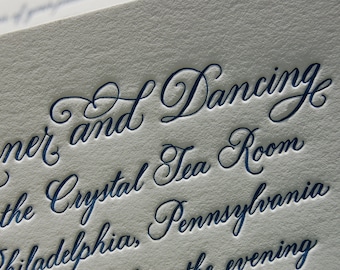 ner and Dancing
the Crystal Tea Room
Philadelphia, Pennsylvania
the evening